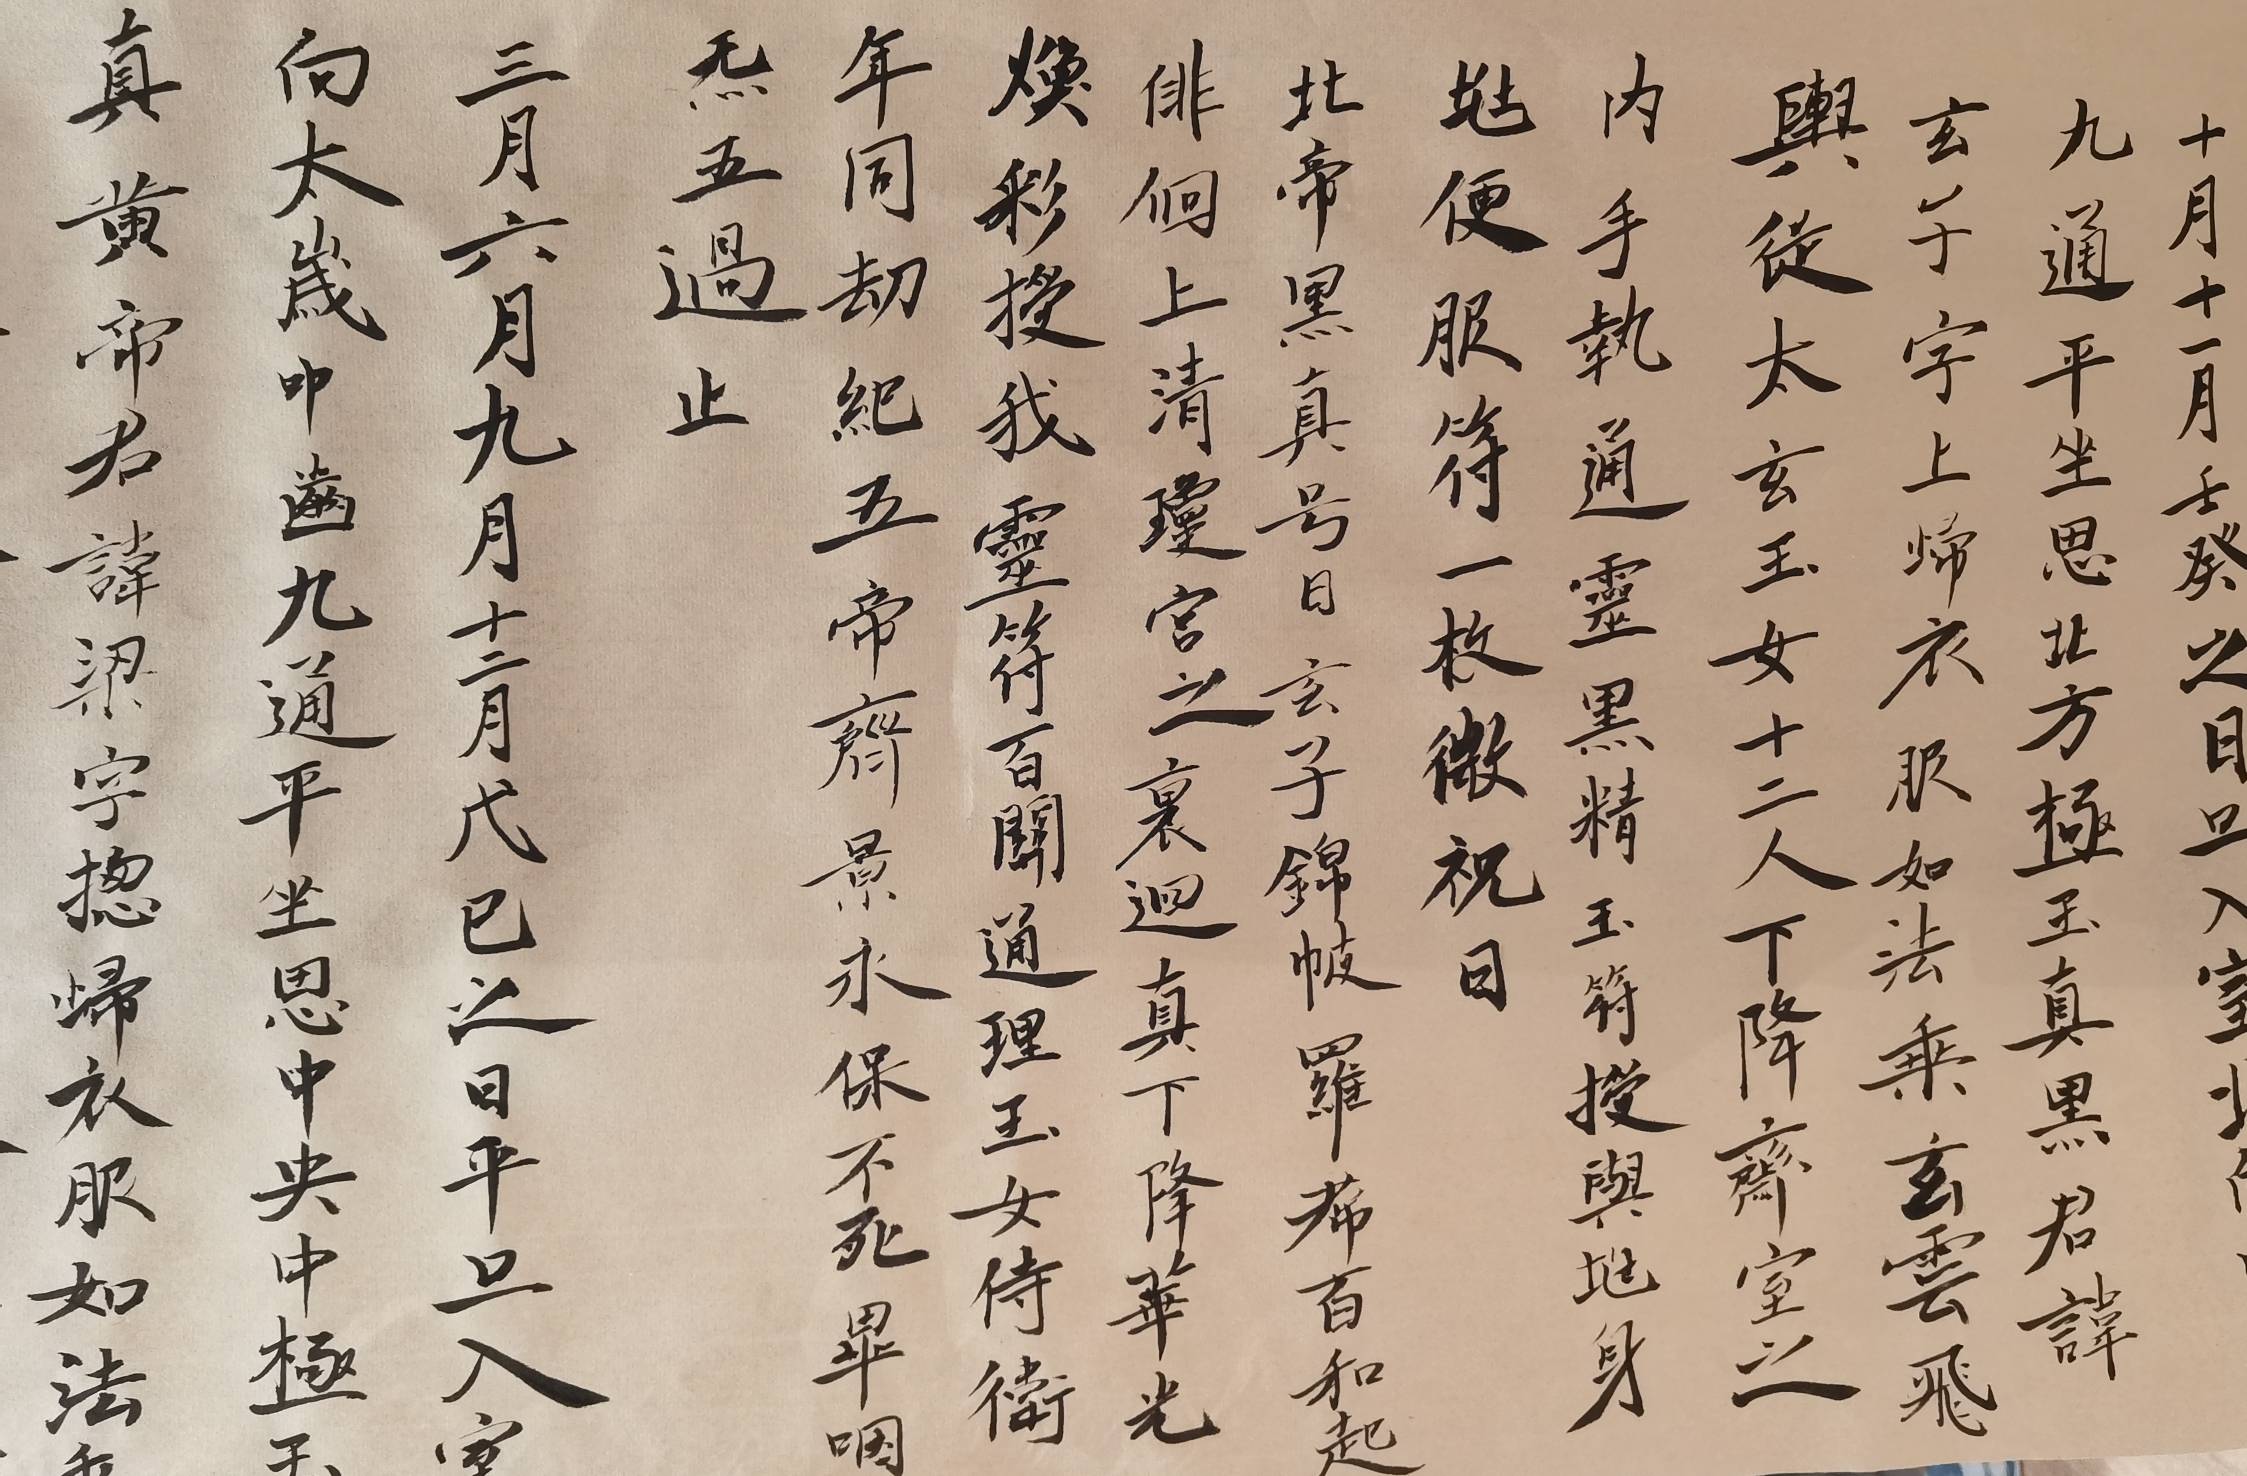 十月十一月壬癸之日旦入室北
九通平坐思北方極玉真黑君諱
玄子字上歸衣服如法乘玄雲飛
輿從太玄玉女十二人下降齋室之
内手執通靈黑精玉符授與兆身
兆便服符一枚微祝曰
北帝黑真号曰玄子錦帔羅裙百和起
俳佪上清瓊宮之裏迴真下降華光
煥彩授我靈符百關通理玉女侍衛
年同劫紀五帝齊景永保不死畢咽
炁五過止
三月六月九月十二月戊巳之日平旦入室
向太歲叩齒九通平坐思中央中極玉
真黄帝君諱梁字揔歸衣服如法乘